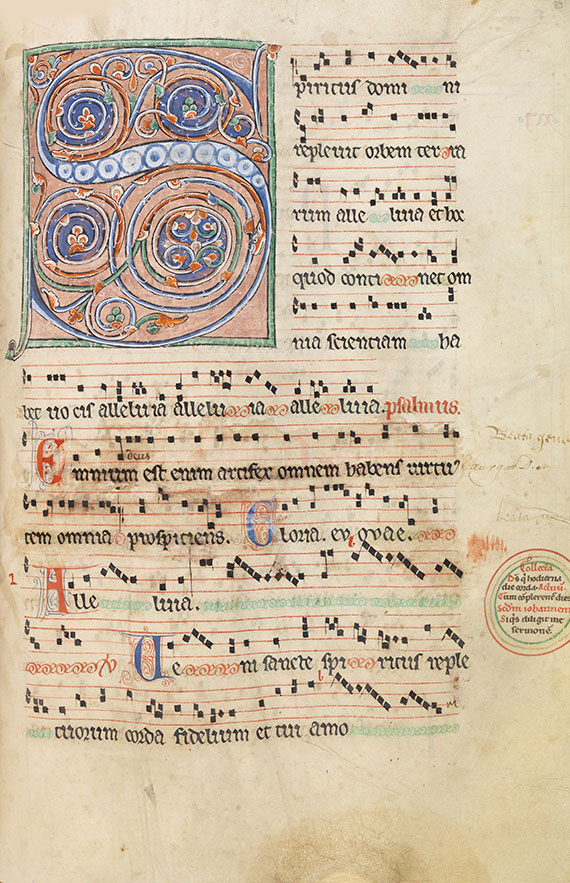 Spiritus domini
replevit orbem terra
rum alle luia et hoc
quod conti net om
nia scientiam ha
bet vo cis alleluia allelu ia alle luia. psalmus.
deus
Omnium est enim artifex omnem habens virtu
tem omnia prospiciens. Gloria. ev ovae.
Alle luia.
Ve ni sancte spi ritus reple
tuorum corda fidelium et tui amo
Collecta
Ds q hodierna
die corda. Actuu
Cum coplerent dies
Scdm iohannem
Siqs diligit me
sermone.
Beata
beata